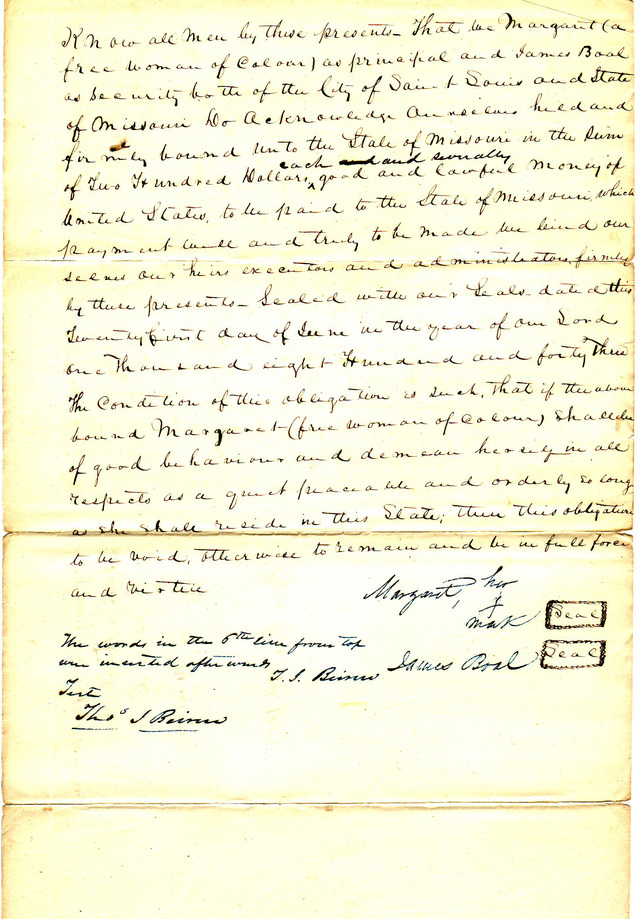 Know all Men by these presents - That we Margaret (a
free woman of Colour) as principal and James Boal
as Security both of the City of Saint Louis and State
of Missouri Do Acknowledge Ourselves held and
firmly bound unto the State of Missouri in the Sum
each and severally
of Two Hundred Dollars, ^ good and lawful money of
United States, to be paid to the State of Missouri, which
payment well and truly to be made we bind our
selves our heirs executors and administrators, firmly
by these presents - Sealed with our Seals - dated this
Twenty first day of June in the year of our Lord
one Thousand eight Hundred and forty Three
The Condition of this obligation is such, that if the above
bound Margaret (free woman of Colour) Shall be
of good behaviour and demean herself in all
respects as a quiet peaceable and orderly so long
as she shall reside in this State; then this obligation
to be void, otherwise to remain and be in full force
and virtue
Margaret, her
x
mark Seal
The words in the 6th line from top
were inserted afterwards
T. J. James Boal Seal
Test
Thos J